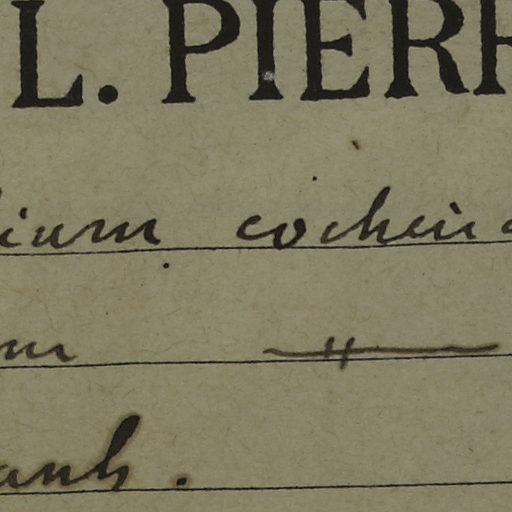 L. PIERR
ium cochin
m
anh.